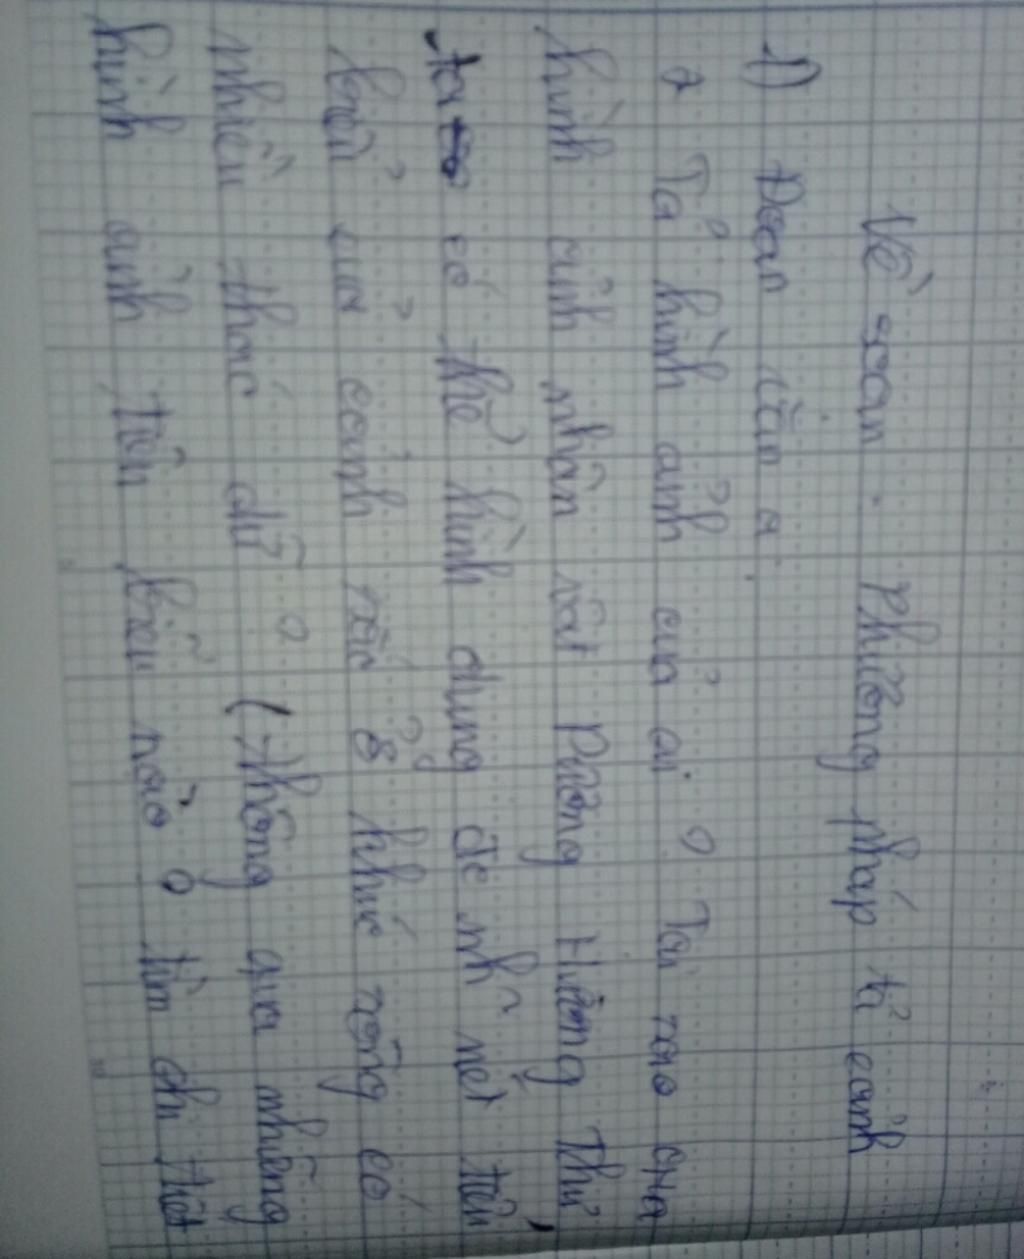 Về soạn. Phương pháp tả cảnh
1) Đoạn văn a
* Tả hình ảnh của ai ? Tại sao qua
hình ảnh nhân vật Dượng Hương Thư
ta có thể hình dung đc nh~ nét tiêu
biểu của cảnh sắc ở khúc sông có
nhiều thác dữ ? (Thông qua những
hình ảnh tiêu biểu nào ? tìm chi tiết